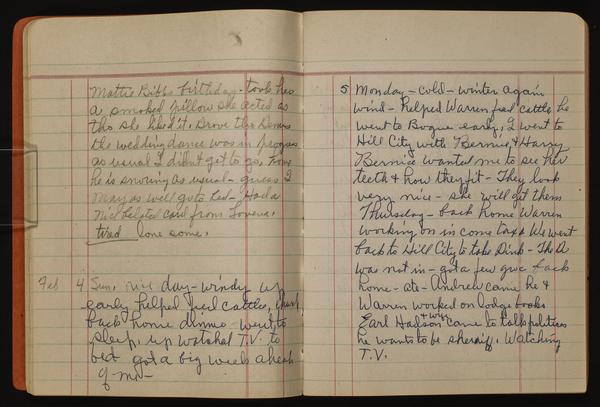 Mattie Bibbs birthday - took her
a smoked pillow she acted as
tho she liked it. Drove thro
the wedding dance was in progress
as usual I didn't get to go, now
he is snoring as usual - guess I
may as well go to bed - Had a
nice belated card from Lovena.
tired lone some.
Feb 4 Sun. nice day - windy up
early helped feed cattle,
back home dinner went to
sleep, up watched T.V. to
bed got a big week ahead
of me -
5 Monday - cold - winter again
wind - helped Warren feed cattle he
went to Bogue early, I went to
Hill City with Bernice & Harry
Bernice wanted me to see her
teeth & how they fit - They look
very nice - she will get them
Thursday - back home Warren
working on in come tax & We went
back to Hill City to take Dink - The A
was not in - got a few groc back
home - ate - Andrew came he &
Warren worked on lodge books
Earl Hadson & wife came to talk politics
he wants to be sheriff. Watching
T.V.